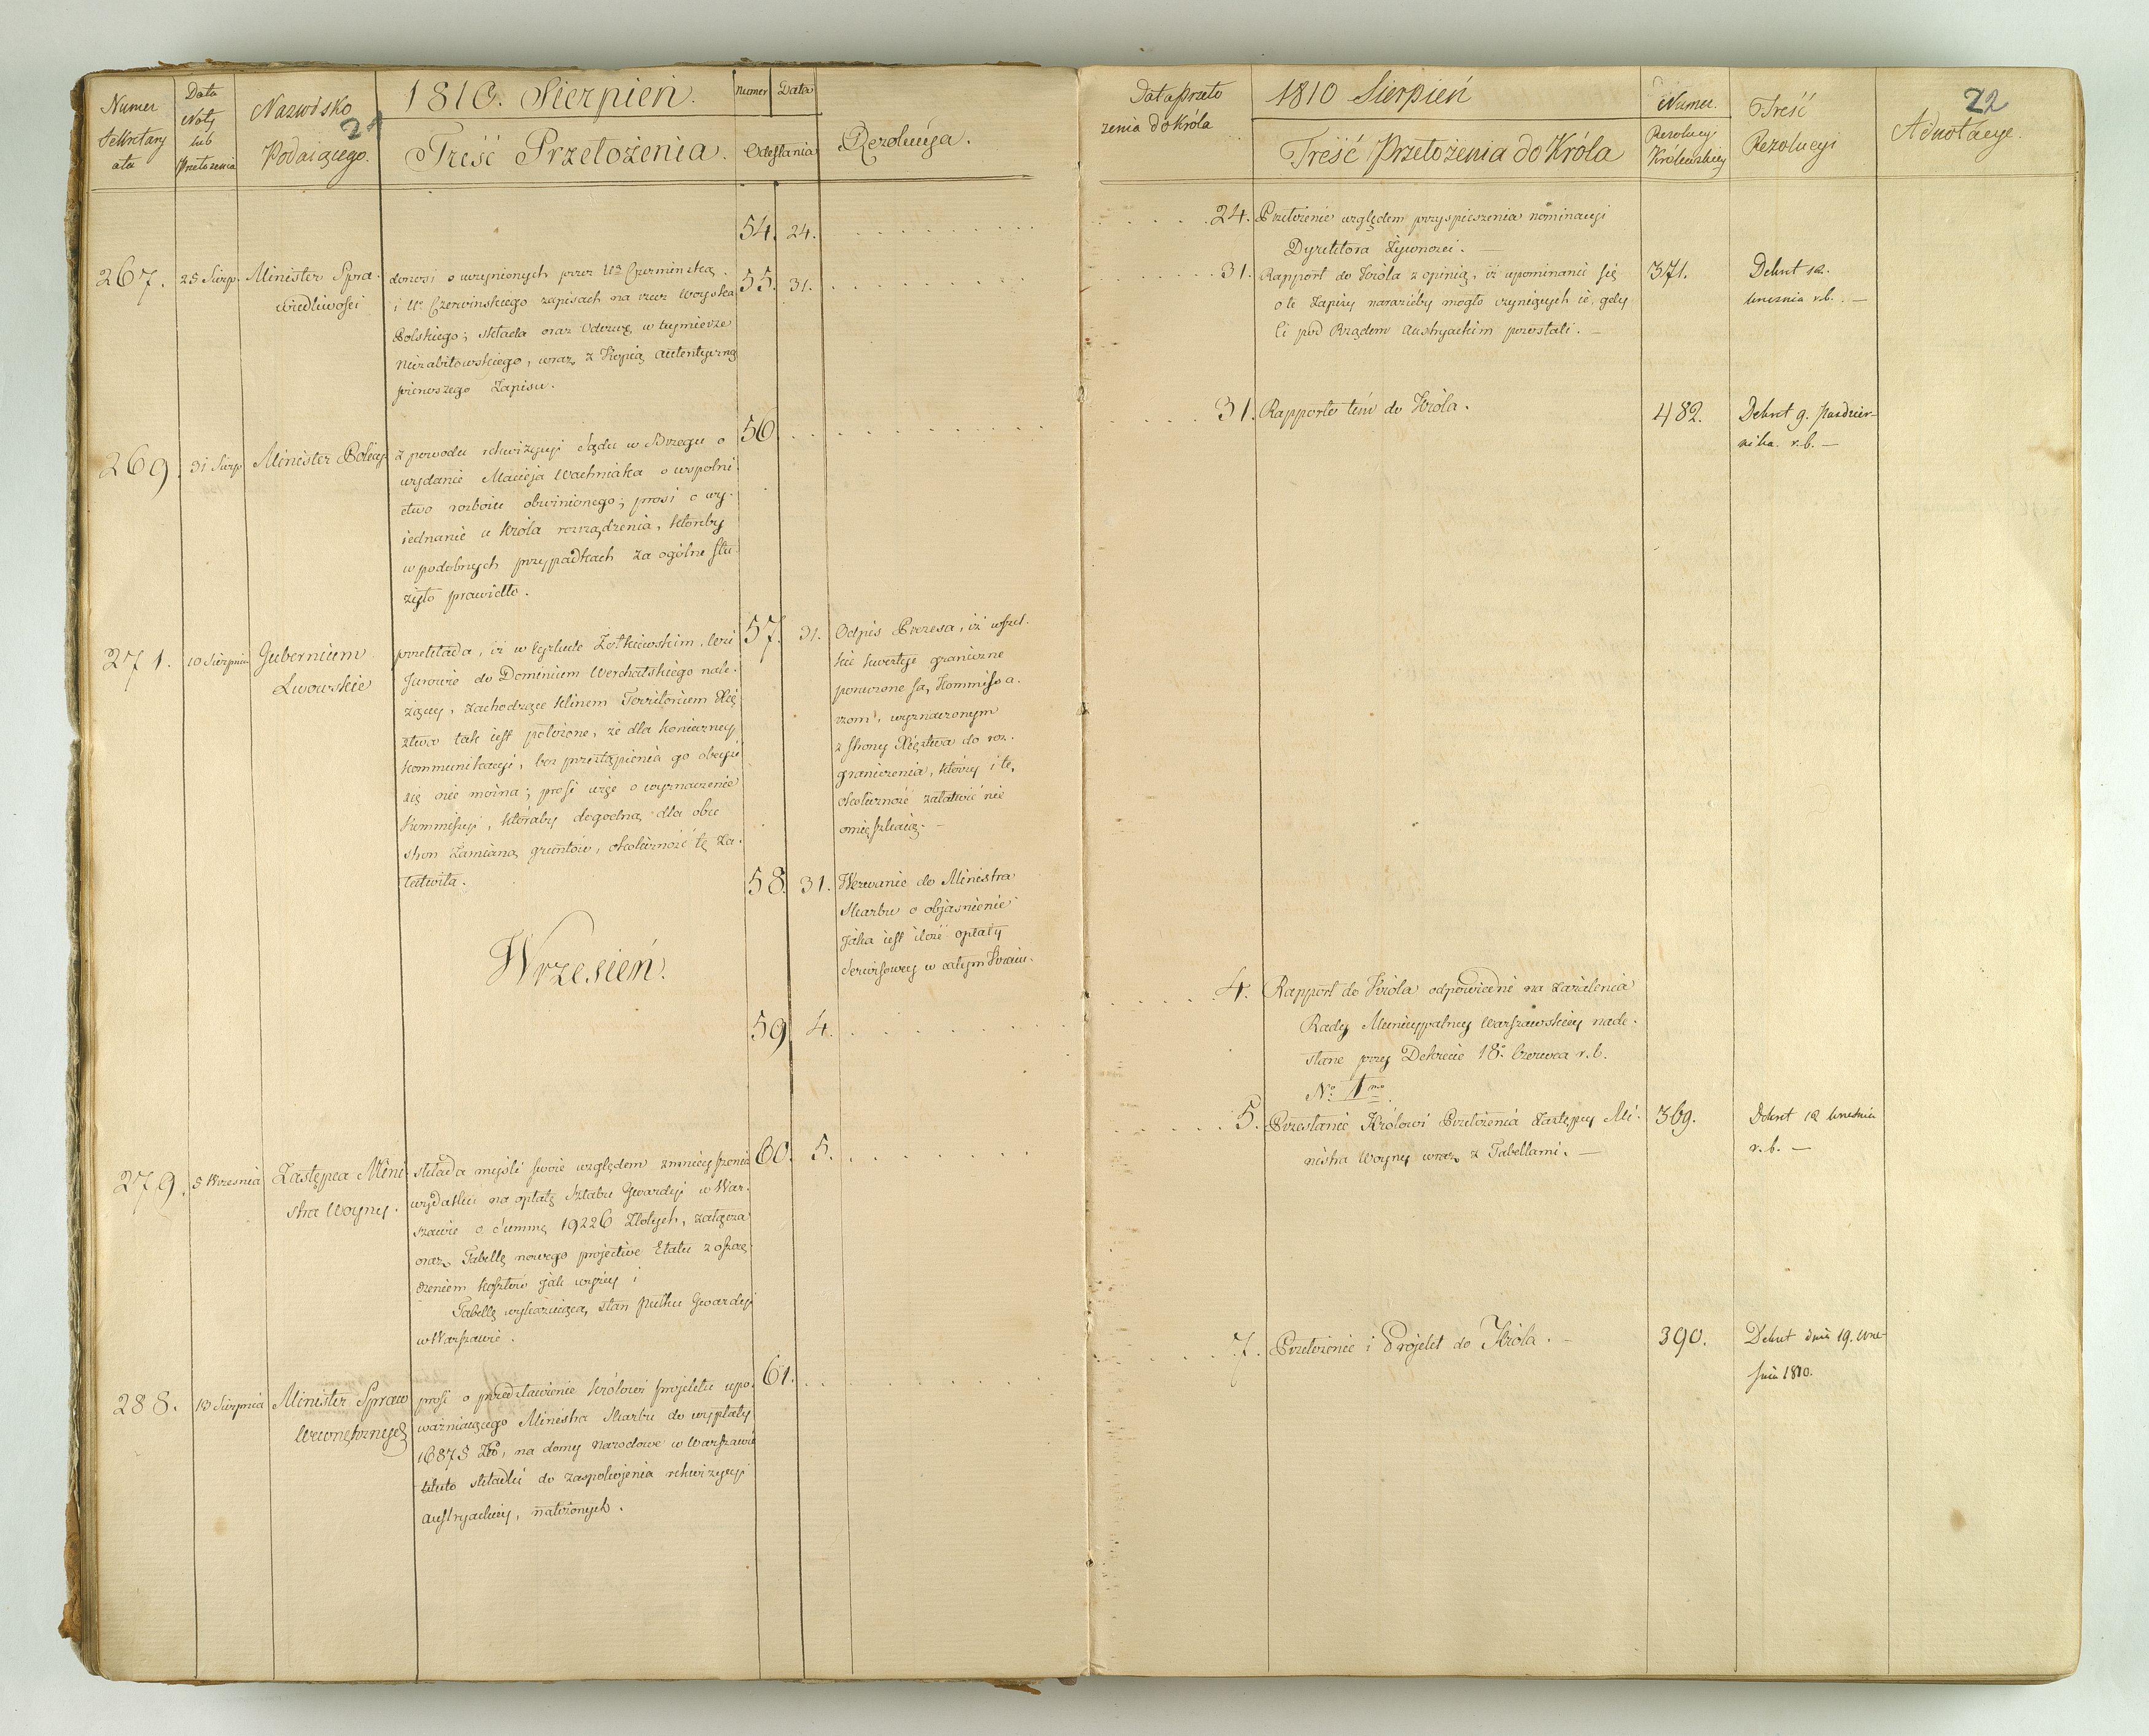 Numer
Sekretary
atu
Data
Noty
lub
Przełożenia
Nazwisko
21
Podaiącego.
1810. Sierpień.
Treść Przełożenia.
Numer Data
Odesłania
Rezolucya.
54. 24.
267. 25 Sierp. Minister Spra-
wiedliwości
donosi o uczynionych przez
i Ur. Czerwinskiego zapisach na rzecz Woyska
Polskiego; składa oraz Odezwę, w tey mierze
wraz z Kopią autentyczną
pierwszego Zapisu.
55. 31.
269. 31 Sierp Minister Policyi
z powodu rekwizycyi Sądu w Brzegu o
wydanie Macieja Wachniaka o wspolni-
ctwo rozboiu obwinionego; prosi o wy-
iednanie u Króla rozrządzenia, któreby
w podobnych przypadkach za ogólne słu-
żyło prawidło.
56.
271. 10 Sierpnia Gubernium
Lwowskie
przekłada, iż w Cyrkule Żołkiewskim, wsi
Jurowie do Dominium Werchatskiego nale-
żącey, zachodzące klinem Territorium Xię-
ztwa tak iest położone, że dla konieczney
kommunikacyi, bez przestąpienia go obeyść
się nie można; prosi więc o wyznaczenie
Kommissyi, któraby dogodną dla obu
stron Zamianą gruntów, okoliczność tę za-
łatwiła.
57. 31. Odpis Prezesa, iż wszel-
kie kwestye graniczne
poruczone są, Kommissa-
rzom, wyznaczonym
z strony Xięztwa do roz-
graniczenia, którzy i tę,
okoliczność załatwić nie
omięszkaią.
58. 31. Wezwanie do Ministra
Skarbu o objasnienie
Jaka iest ilość opłaty
Serwisowey w całym Kraiu.
Wrzesień.
59. 4.
279. 5 Wrzesnia Zastępca Mini-
stra Woyny.
składa myśli swoie względem zmnieyszenia
wydatku na opłatę Sztabu Gwardyi w War-
szawie o Summę 19226 Złotych, załącza
oraz, Tabellę nowego projective Etatu z oszczę-
dzeniem kosztów jak wyżey i
Tabellę wykazuiącą, stan Pułku Gwardyi
w Warszawie.
60. 5.
288. 13 Sierpnia Minister Spraw
Wewnętrznych
prosi o przedstawienie Królowi projektu upo-
ważniaiącego Ministra Skarbu do wypłaty
16875 Złp, na domy Narodowe w Warszawie
tytuło składki do zaspokojenia rekwizycyi
Austryackiey, nałożonych.
61.
Data Przeło
żenia do Króla
1810 Sierpień
Treść Przełożenia do Króla
Numer.
Rezolucyi
Królewskiey
Treść
Rezolucyi
22
Adnotacye.
24. Przełożenie względem przyspieszenia nominacyi
Dyrektora Żywności. —
31. Rapport do Króla z opinią, iż upominanie się
o te Zapisy narazićby mogło czyniących ie, gdy
ci pod Rządem Austryackim pozostali. —
371. Dekret 12.
Wrzesnia r.b. —
31. Rapport tém do Króla.
482. Dekret 9. Paździer-
nika. r.b. —
4. Rapport do Króla odpowiedni na zażalenia
Rady Municypalney Warszawskiey nade-
słane przy Dekrecie 18. Czerwca r.b.
No. 1mo
5. Przesłanie Królowi Przełożenia Zastępcy Mi-
nistra Woyny wraz z Tabellami. —
369. Dekret 12 Wrzesnia
r.b. —
7. Przełożenie i Projekt do Króla. —
390. Dekret dnia 19. Wrze-
snia 1810.